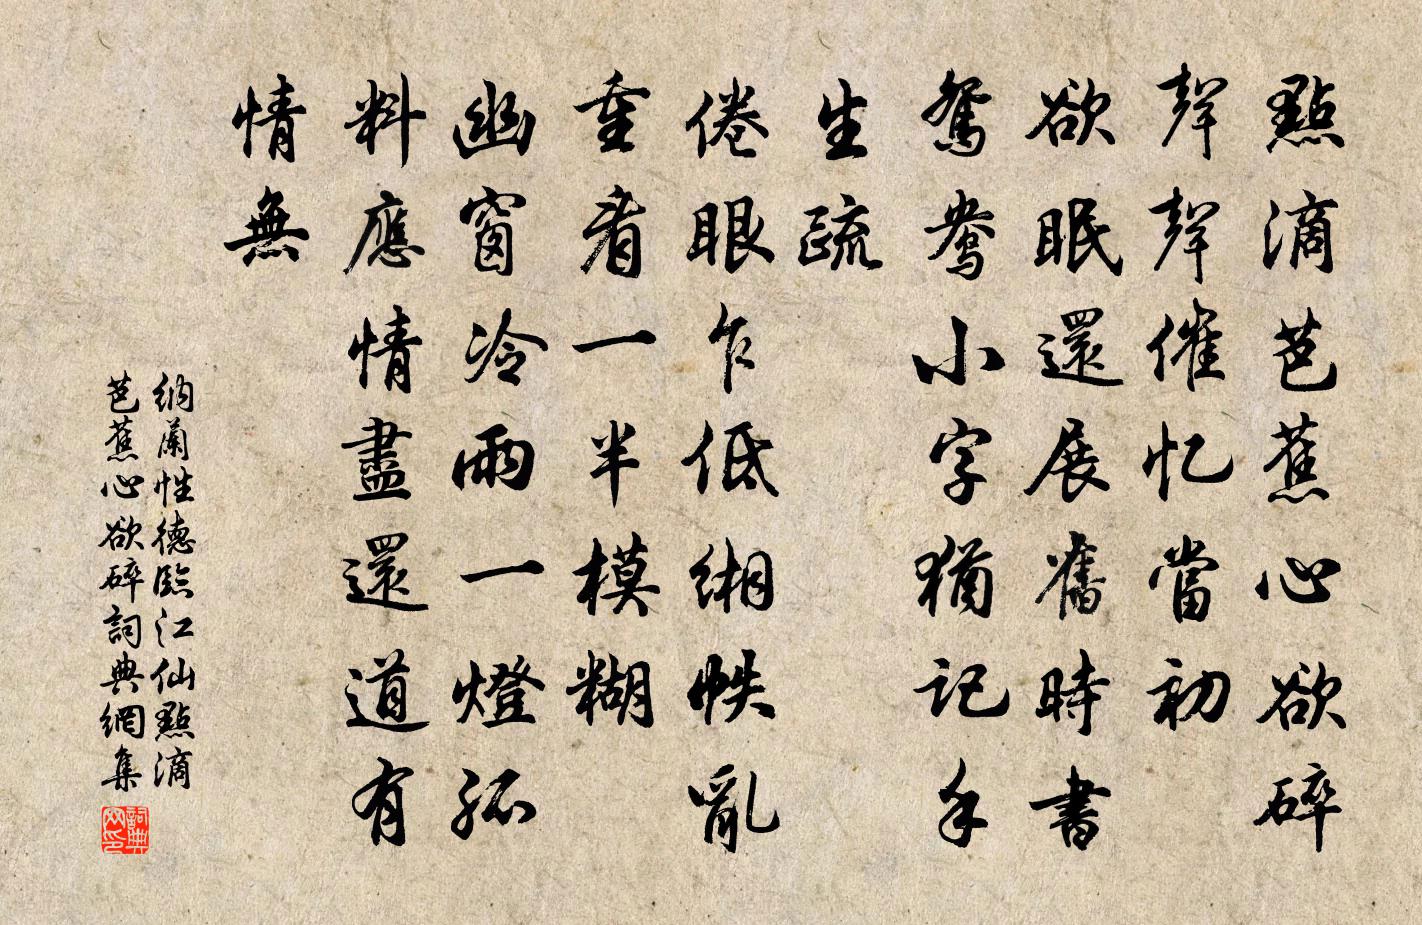 點滴芭蕉心欲碎
聲聲催忆當初
欲眠還展舊時書
鴛鴦小字猶記手
生疏
倦眼乍低缃帙亂
重看一半模糊
幽窗冷雨一燈孤
料應情盡還道有
情無
纳蘭性德臨江仙點滴
芭蕉心欲碎詞典網集
詞典
网印